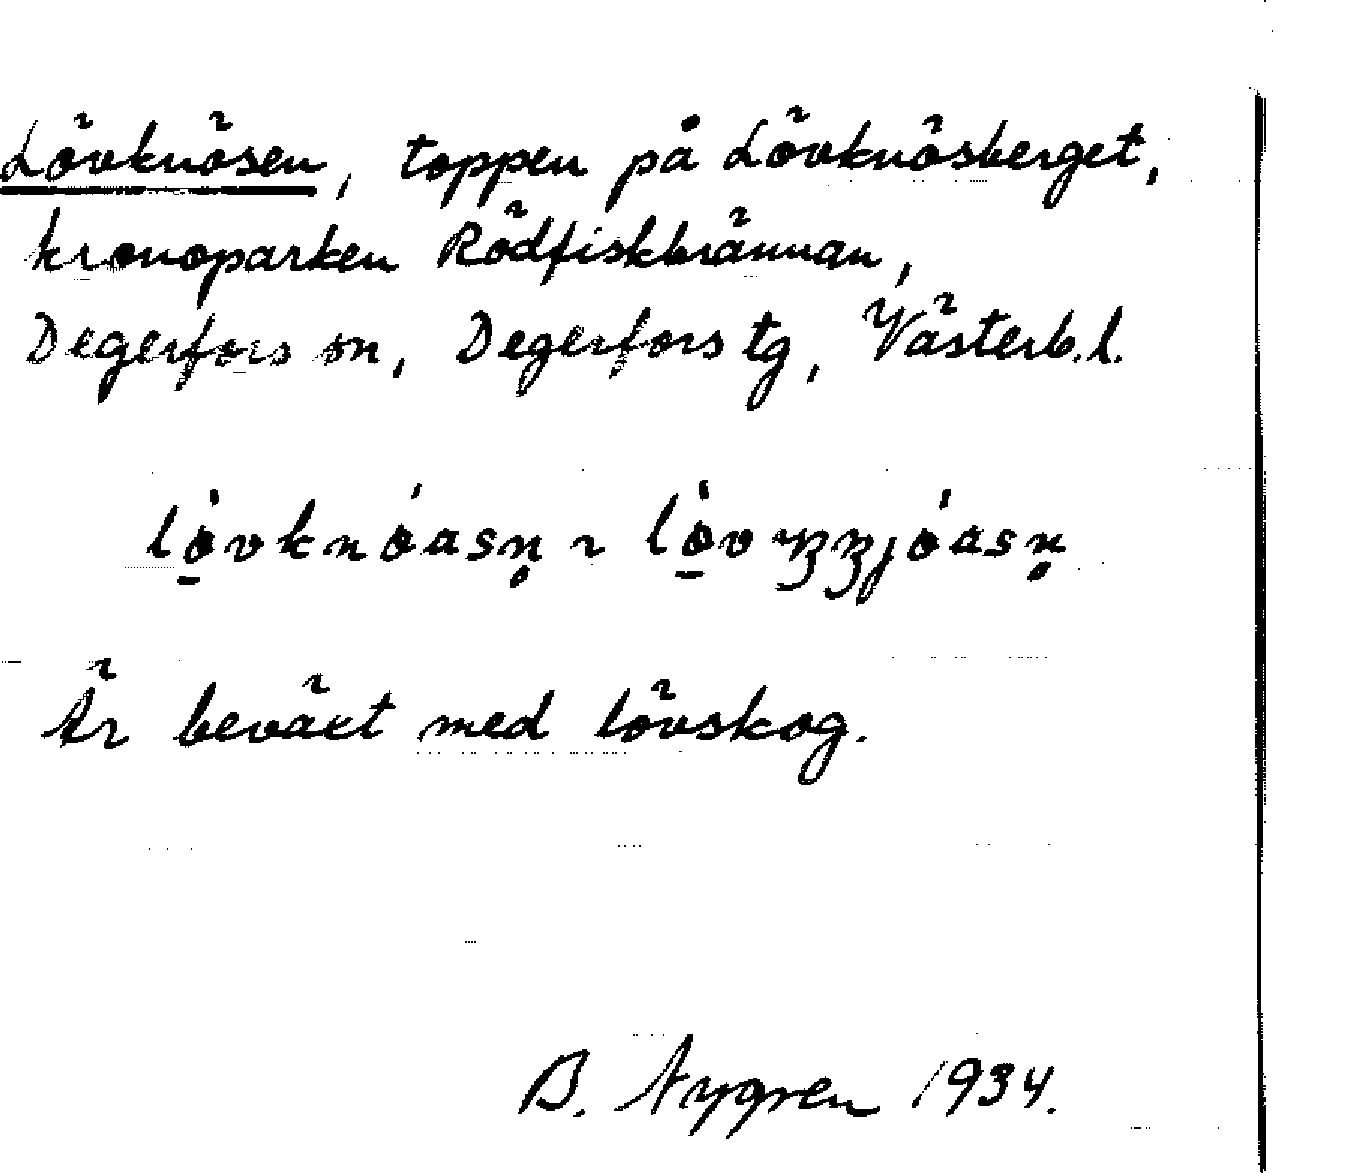 Lövknösen, toppen på Lövknösberget,
kronoparken Rödfiskbrännan,
Degerfors sn, Degerfors tg, Västerb.l.
Är beväxt med lövskog.
B. Nygren 1934.